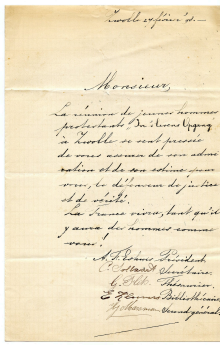 Zwolle 24 février 98.
Monsieur,
La réunion de jeunes hommes
protestants "Da Levens Opgang"
à Zwolle se sent pressée
de vous assurer de son admi
ration et de son estime pour
vous, le défenseur de justice
et de vérité.
La France vivra, tant qu'il
y aura des hommes comme
vous!
Président
Secrétaire.
Trésorier
Bibliothécaire
Second général.